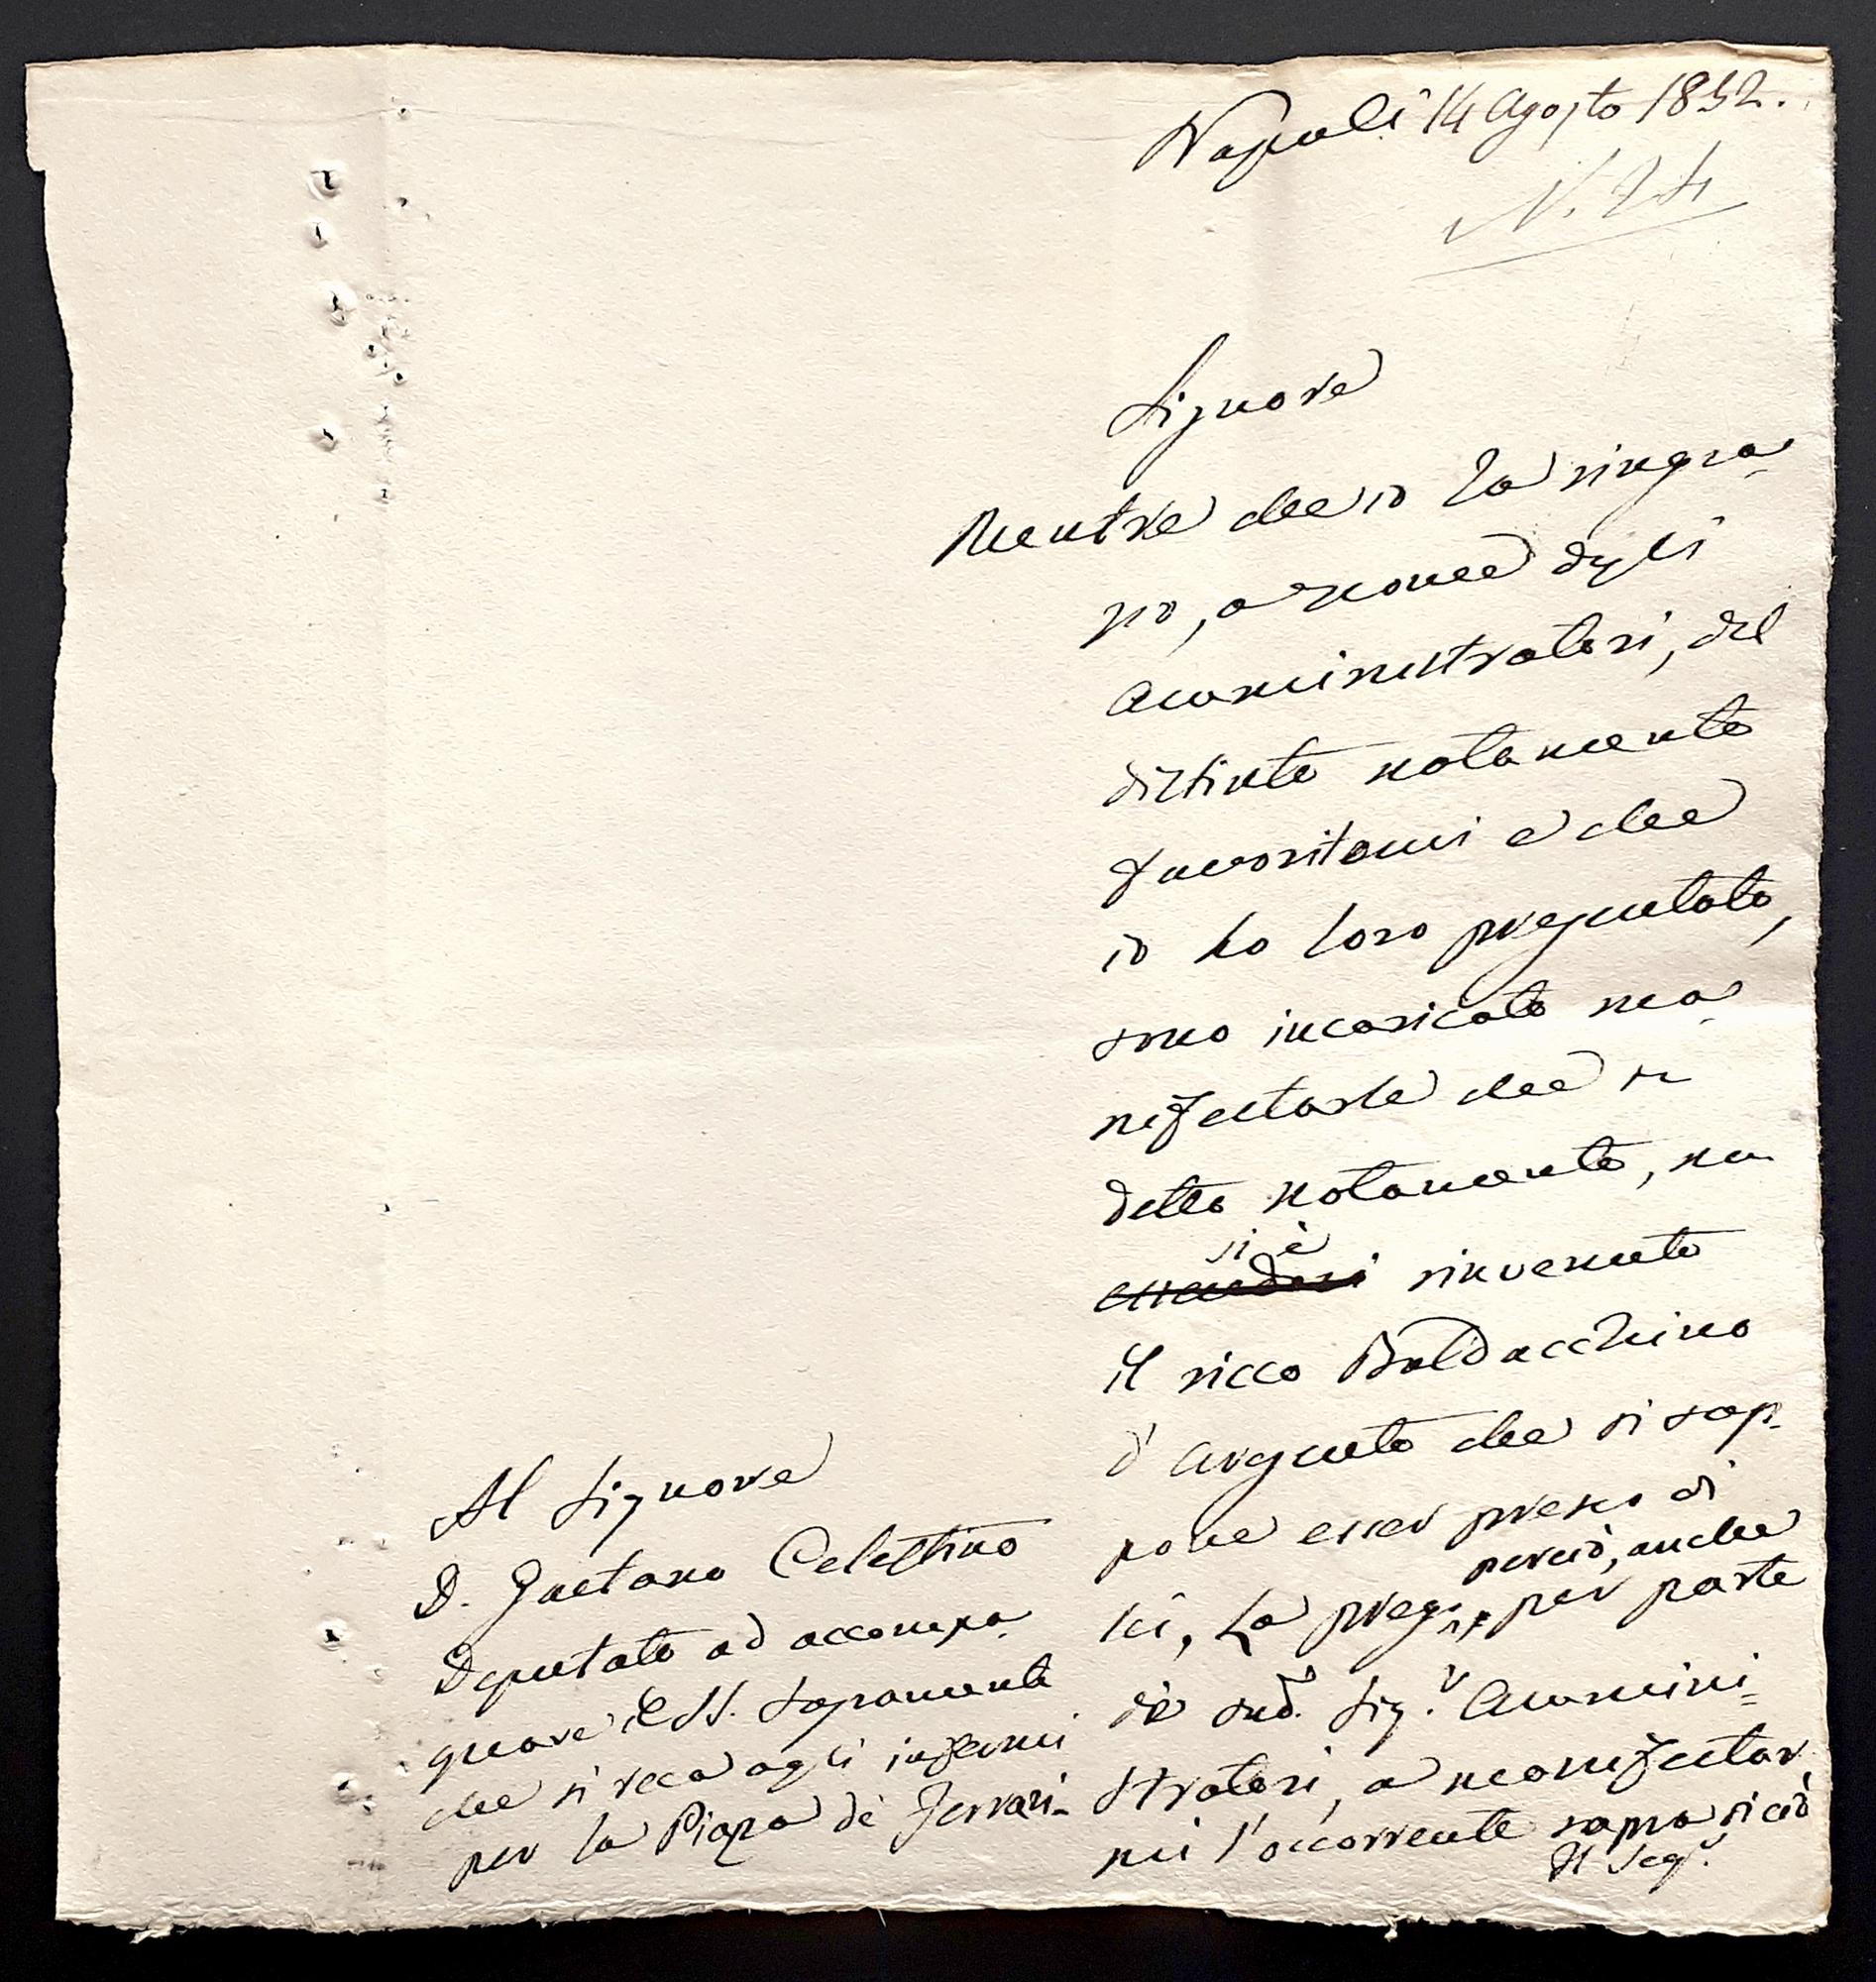 Napoli 14 Agosto 1852.
N. 24
Signore
Mentre che io La ringra-
zio, a nome degli
Amministratori, del
distinto notamento
favoritomi e che
io ho loro presentato,
sono incaricato ma-
nifestarle che in
detto notamento, non
si è
essendosi rinvenuto
il ricco Baldacchino
d'argento che si sup-
pone esser presso di
perciò, anche
Lei, La prego, per parte
de' sud.i Sig.r Ammini=
stratori, a manifestar,
mi l'occorrente sopra di ciò
Il Seg.
Al Signore
D. Gaetano Celestino
Deputato ad accompa-
gnare il SS. Sagramento
che si reca agli infermi
per la Piazza de' Ferrari-